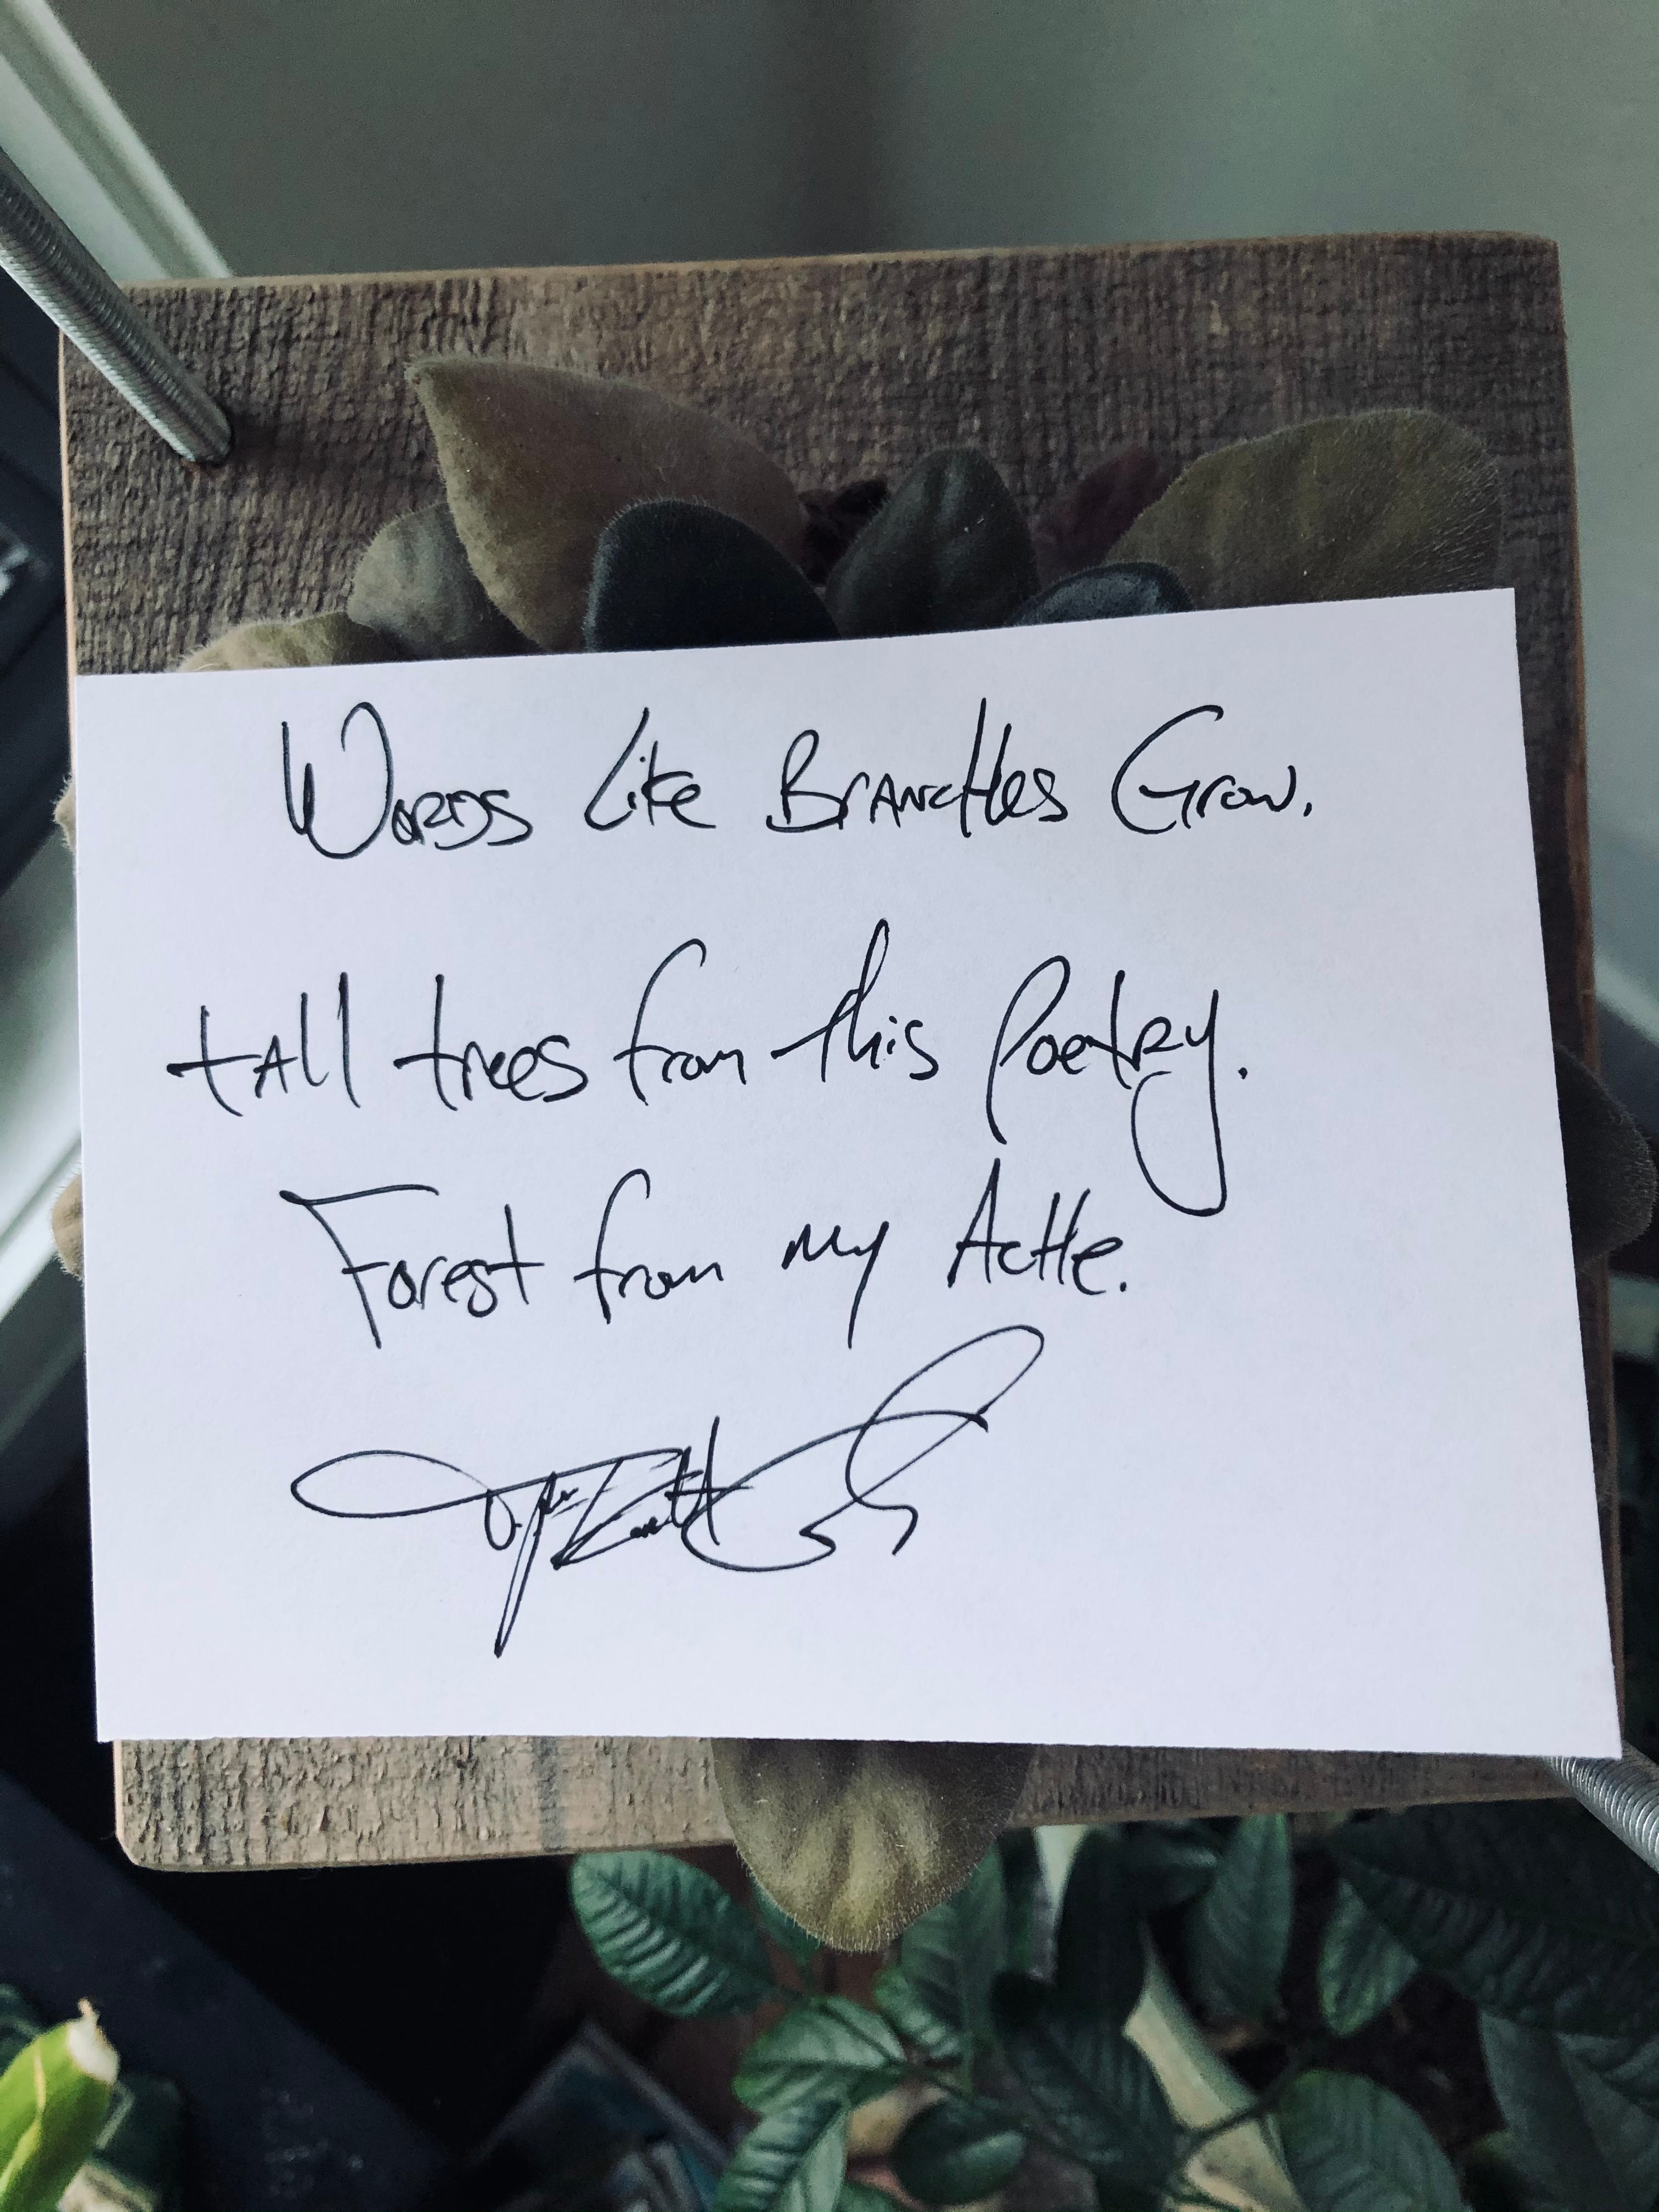 Words Like Branches Grow.
tall trees from this Poetry.
Forest from my Ache.